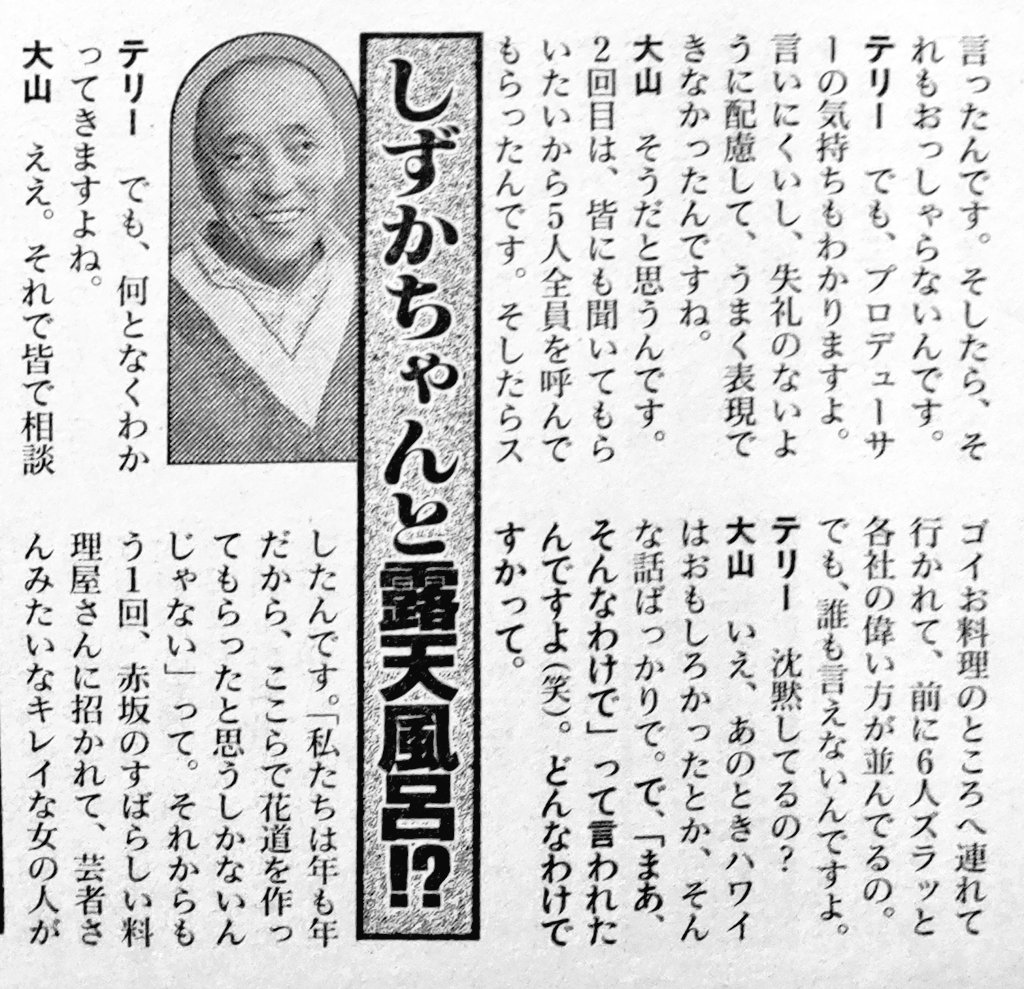 言ったんです。そしたら、そ
れもおっしゃらないんです。
テリー　でも、プロデューサ
ーの気持ちもわかりますよ。
言いにくいし、失礼のないよ
うに配慮して、うまく表現で
きなかったんですね。
大山　そうだと思うんです。
2回目は、皆にも聞いてもら
いたいから5人全員を呼んで
もらったんです。そしたらス
ゴイお料理のところへ連れて
行かれて、前に6人ズラッと
各社の偉い方が並んでるの。
でも、誰も言えないんですよ。
テリー　沈黙してるの？
大山　いえ、あのときハワイ
はおもしろかったとか、そん
な話ばっかりで。で、「まあ、
そんなわけで」って言われた
んですよ（笑）。どんなわけで
すかって。
しずかちゃんと露天風呂!?
テリー　でも、何となくわか
ってきますよね。
大山　ええ。それで皆で相談
したんです。「私たちは年も年
だから、ここらで花道を作っ
てもらったと思うしかないん
じゃない」って。それからも
う1回、赤坂のすばらしい料
理屋さんに招かれて、芸者さ
んみたいなキレイな女の人が